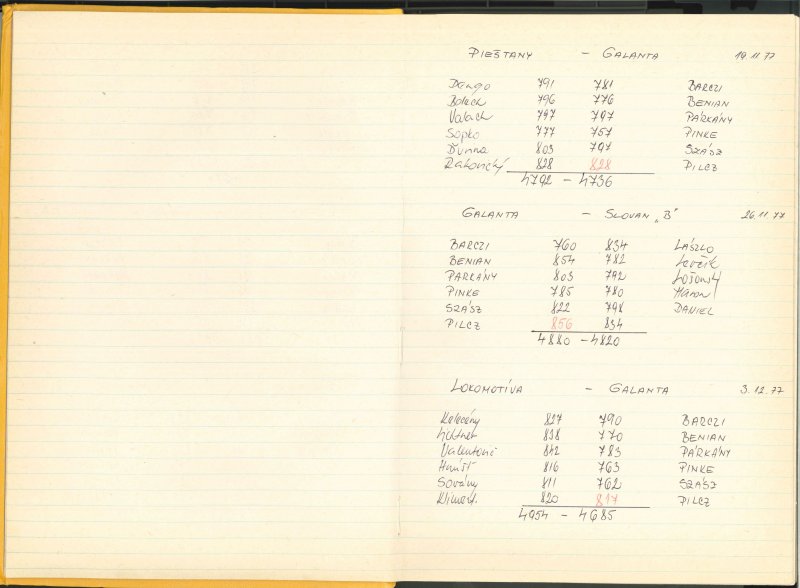 PIEŠŤANY – GALANTA 19.11.77
Dango 791 781 BARCZI
796 776 BENIAN
Valach 797 797 PÁRKÁNY
Sopko 777 757 PINKE
Ďurina 803 797 SZÁSZ
Rakovický 828 828 PILCZ
4792 – 4736
GALANTA – SLOVAN „B" 26.11.77
BARCZI 760 834 LÁSZLO
BENIAN 854 782 Levčík
PARKÁNY 803 792
PINKE 785 780
SZÁSZ 822 798 DANIEL
PILCZ 856 834
4880 – 4820
LOKOMOTÍVA – GALANTA 3.12.77
Kelecény 827 790 BARCZI
838 770 BENIAN
842 783 PÁRKÁNY
816 763 PINKE
Sovány 811 762 SZÁSZ
Kliment. 820 817 PILCZ
4954 – 4685